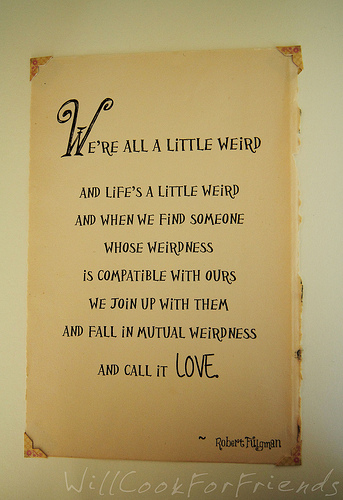 WE'RE ALL A LITTLE WEIRD
AND LIFE'S A LITTLE WEIRD
AND WHEN WE FIND SOMEONE
WHOSE WEIRDNESS
IS COMPATIBLE WITH OURS
WE JOIN UP WITH THEM
AND FALL IN MUTUAL WEIRDNESS
AND CALL IT LOVE.
~ Robert Fulgman
WillCookForFriends